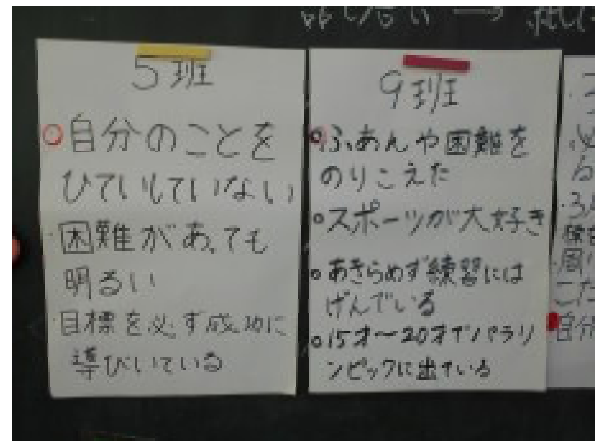 話し合い →
5班
自分のことを
ひていしていない
・困難があっても
明るい
・目標を必ず成功に
導びいている
9班
ふあんや困難を
のりこえた
スポーツが大好き
あきらめず練習には
げんでいる
15才〜20才でパラリ
ンピックに出ている
自分